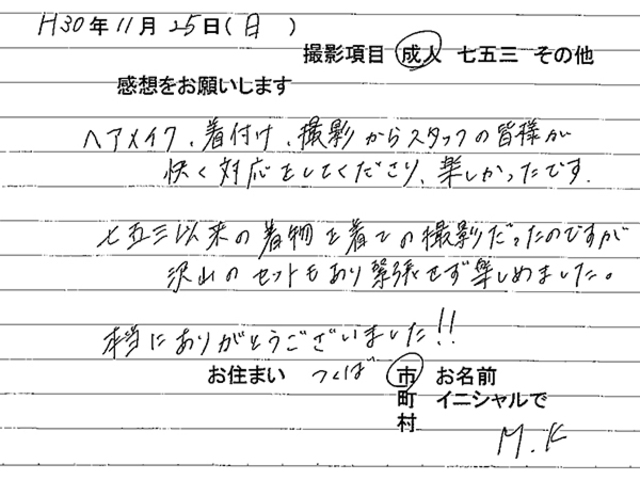 H30年11月25日(日)
撮影項目 成人 七五三 その他
感想をお願いします
ヘアメイク、着付け、撮影からスタッフの皆様が
快く対応をしてくださり、楽しかったです.
七五三以来の着物を着ての撮影だったのですが
沢山のセットもあり緊張せず楽しめました。
本当にありがとうございました!!
お住まい つくば 市 お名前
町 イニシャルで
村 M.K